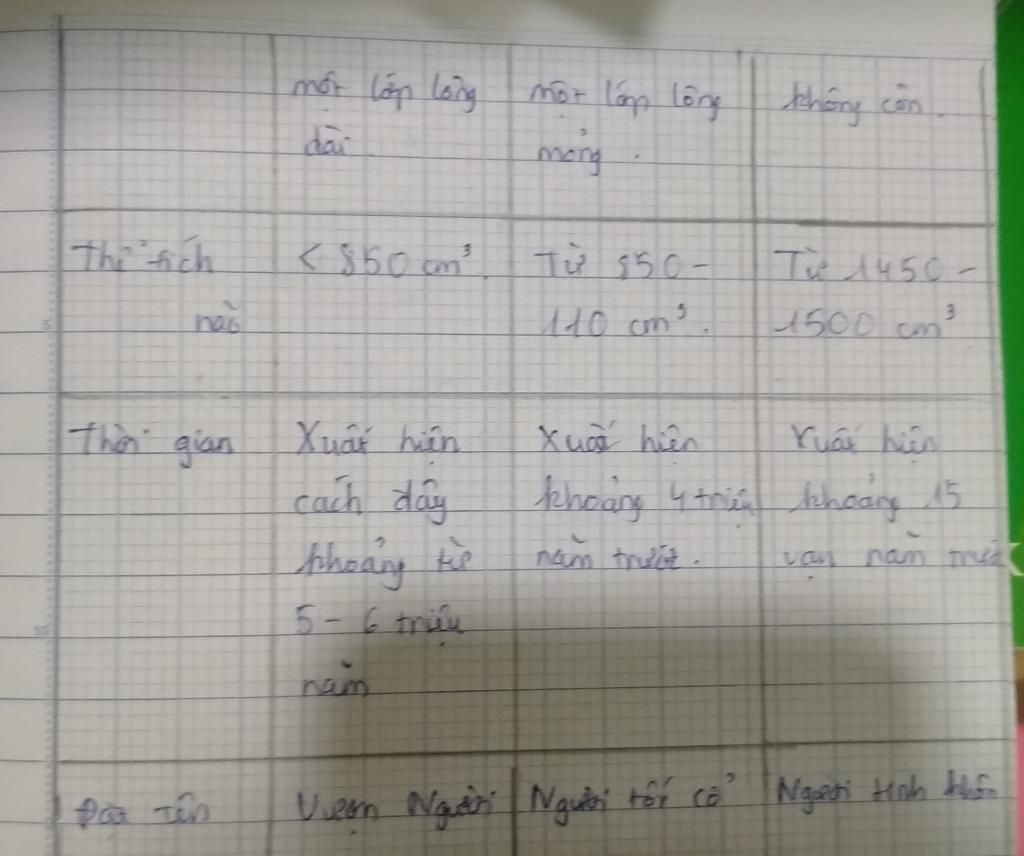 một lớp lông một lớp lông không còn.
dài mỏng.
Thể tích < 850 cm³. Từ 850 - Từ 1450 -
não 110 cm³. 1500 cm³
Thời gian Xuất hiện Xuất hiện Xuất hiện
cách đây khoảng 4 triệu khoảng 15
khoảng từ năm trước. vạn năm trước
5 - 6 triệu
năm
Đặt tên Vượn Người Người tối cổ Người tinh khôn